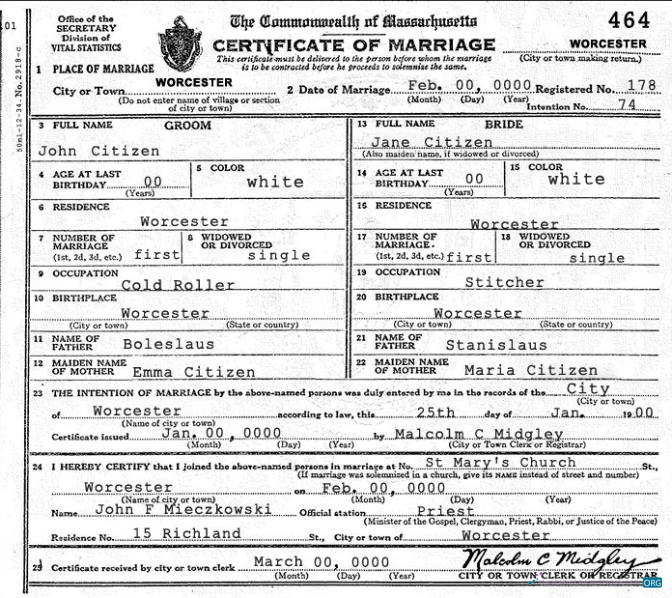 01
50m1-12-34. No. 2918-c
Office of the
SECRETARY
Division of
VITAL STATISTICS
The Commonwealth of Massachusetts
464
CERTIFICATE OF MARRIAGE
WORCESTER
This certificate must be delivered to the person before whom the marriage
is to be contracted before he proceeds to solemnize the same.
(City or town making return.)
1 PLACE OF MARRIAGE
City or Town WORCESTER 2 Date of Marriage Feb. 00, 0000 Registered No. 178
(Do not enter name of village or section
of city or town)
(Month) (Day) (Year) Intention No. 74
3 FULL NAME GROOM
John Citizen
13 FULL NAME BRIDE
Jane Citizen
(Also maiden name, if widowed or divorced)
4 AGE AT LAST
BIRTHDAY 00
(Years)
5 COLOR
white
14 AGE AT LAST
BIRTHDAY 00
(Years)
15 COLOR
white
6 RESIDENCE
Worcester
16 RESIDENCE
Worcester
7 NUMBER OF
MARRIAGE
(1st, 2d, 3d, etc.) first
8 WIDOWED
OR DIVORCED
single
17 NUMBER OF
MARRIAGE.
(1st, 2d, 3d, etc.) first
18 WIDOWED
OR DIVORCED
single
9 OCCUPATION
Cold Roller
19 OCCUPATION
Stitcher
10 BIRTHPLACE
Worcester
(City or town) (State or country)
20 BIRTHPLACE
Worcester
(City or town) (State or country)
11 NAME OF
FATHER Boleslaus
21 NAME OF
FATHER Stanislaus
12 MAIDEN NAME
OF MOTHER Emma Citizen
22 MAIDEN NAME
OF MOTHER Maria Citizen
23 THE INTENTION OF MARRIAGE by the above-named persons was duly entered by me in the records of the City
(City or town)
of Worcester according to law, this 25th day of Jan. 1900
(Name of city or town)
Certificate issued Jan. 00, 0000 by Malcolm C Midgley
(Month) (Day) (Year) (City or Town Clerk or Registrar)
24 I HEREBY CERTIFY that I joined the above-named persons in marriage at No. St Mary's Church St.,
(If marriage was solemnized in a church, give its NAME instead of street and number)
Worcester on Feb. 00, 0000
(Name of city or town) (Month) (Day) (Year)
Name John F Mieczkowski Official station Priest
(Minister of the Gospel, Clergyman, Priest, Rabbi, or Justice of the Peace)
Residence No. 15 Richland St., City or town of Worcester
25 Certificate received by city or town clerk March 00, 0000 Malcolm C Midgley
(Month) (Day) (Year) CITY OR TOWN CLERK OR REGISTRAR
ORG